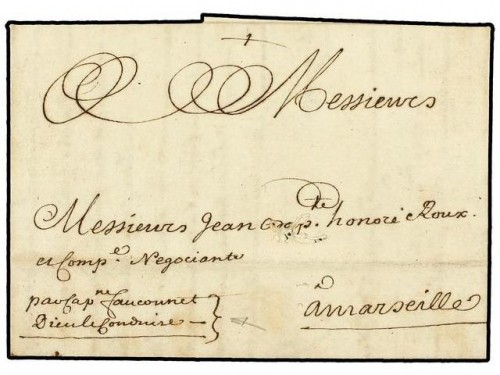 Messieurs
Messieurs Jean & p.te honoré Roux
et Comp.e Negociants
par Cap.ne fauconnet
Dieu le Conduise
a
a marseille